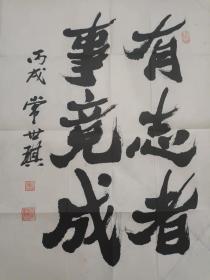 有志者
事竟成
丙戌 常世麒